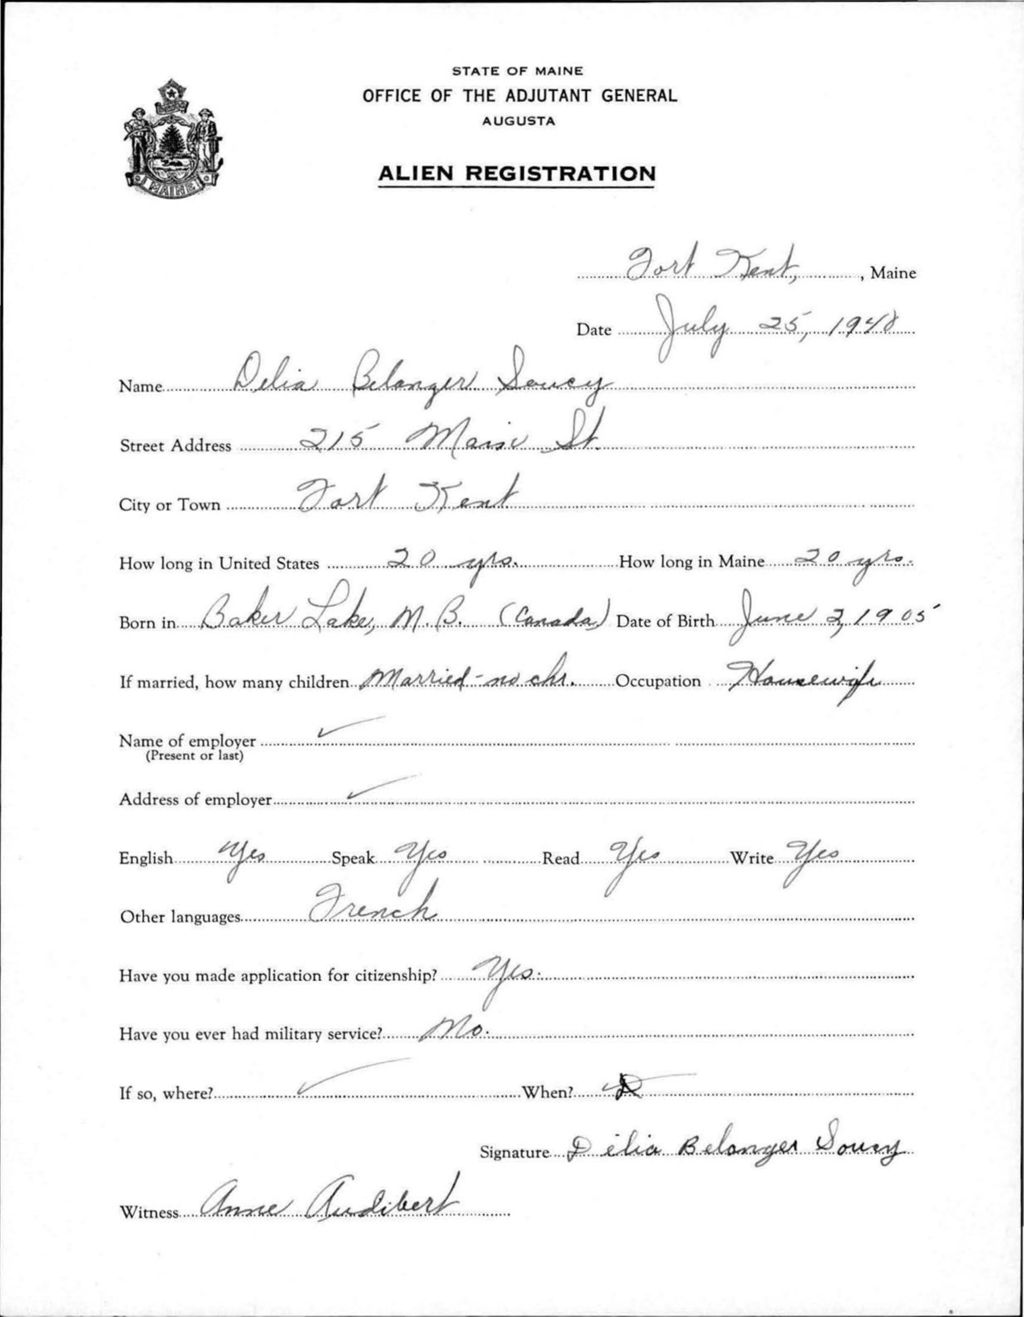 STATE OF MAINE
OFFICE OF THE ADJUTANT GENERAL
AUGUSTA
ALIEN REGISTRATION
Fort Kent, , Maine
Date July 25, 1940
Name Delia Belanger Soucy
Street Address 215 Main St.
City or Town Fort Kent
How long in United States 20 yrs. How long in Maine 20 yrs.
Born in Baker Lake, N.B. (Canada) Date of Birth June 2, 1905
If married, how many children Married - no chr. Occupation Housewife
Name of employer
(Present or last)
Address of employer
English Yes Speak Yes Read Yes Write Yes
Other languages French
Have you made application for citizenship? Yes.
Have you ever had military service? No.
If so, where? When?
Signature Délia Belanger Soucy
Witness Anne Audibert